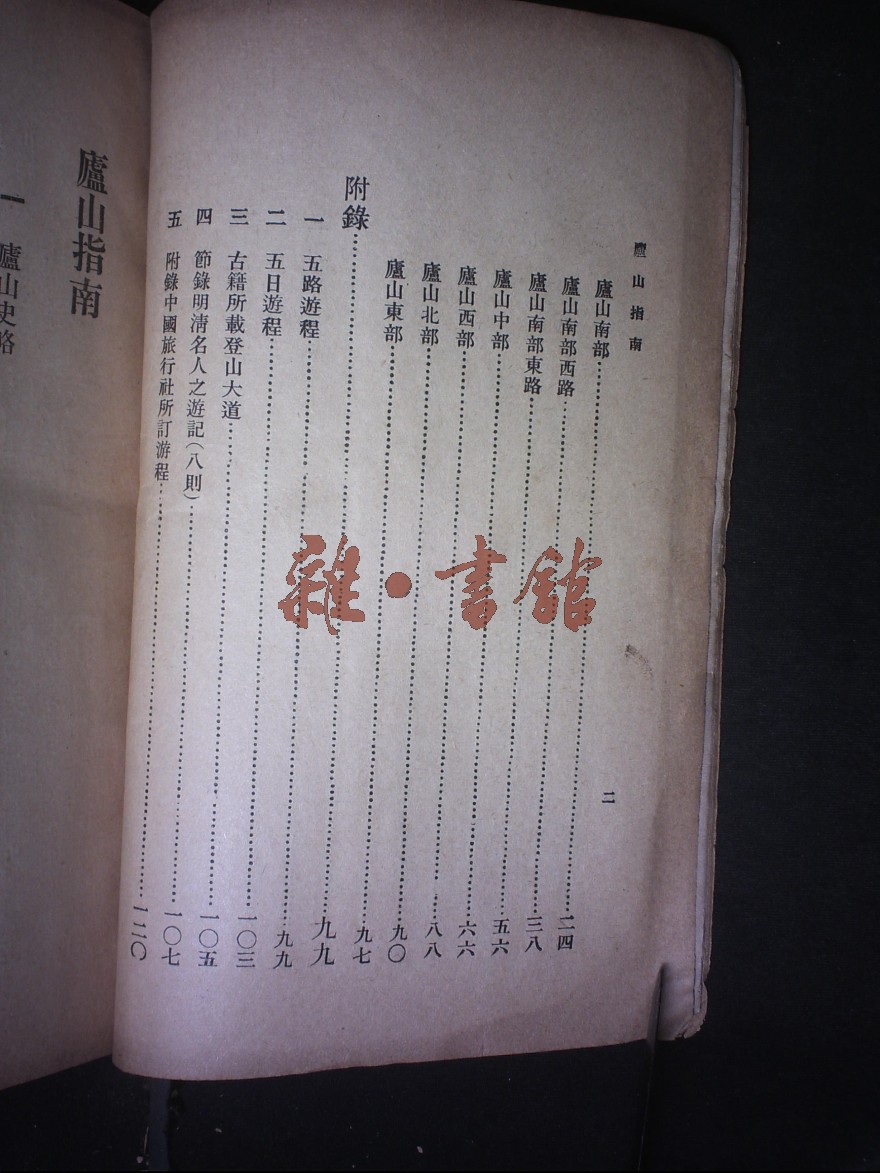 廬山指南
二
廬山南部……二四
廬山南部西路……三八
廬山南部東路……五六
廬山中部……六六
廬山西部……八八
廬山北部……九〇
廬山東部……九七
附錄……九九
一 五路遊程……九九
二 五日遊程……一〇三
三 古籍所載登山大道……一〇五
四 節錄明淸名人之遊記(八則)……一〇七
五 附錄中國旅行社所訂游程……一二〇
廬山指南
一 廬山史略
雜·書館